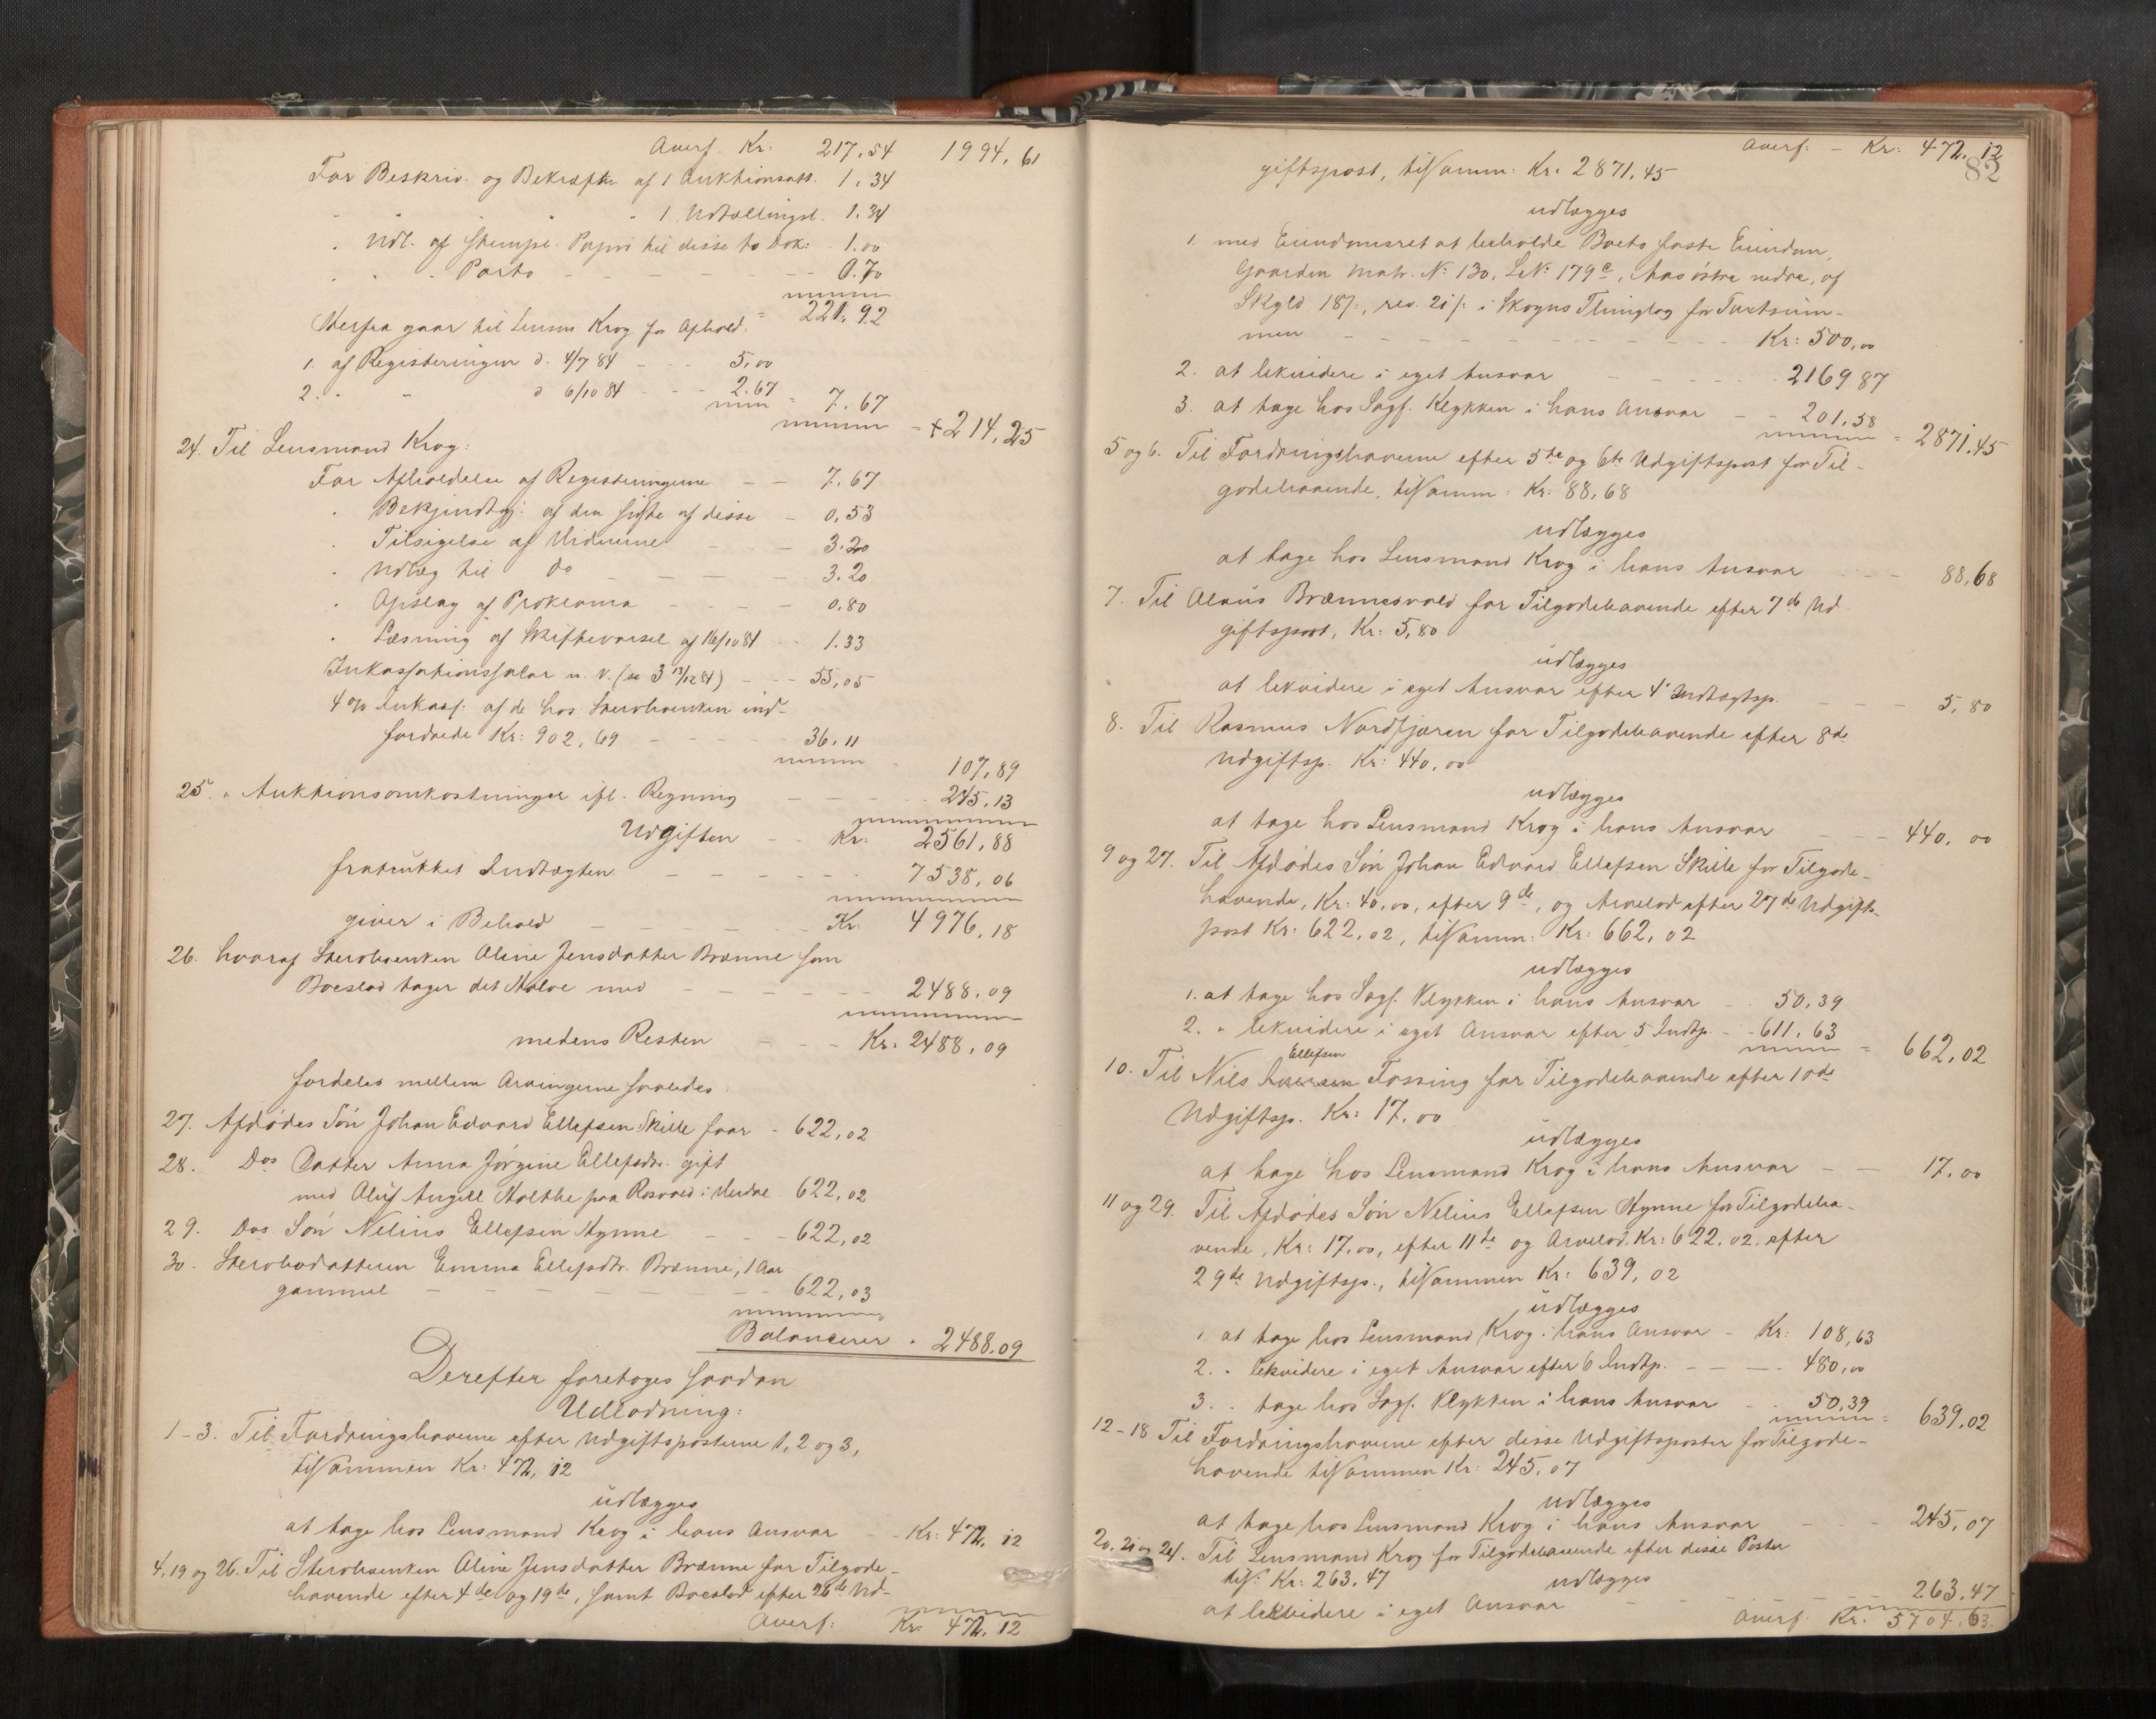 Averf. Kr: 217,54 1994,61
For Beskriv. og Bekræft af 1 Auktionsatt. 1,34
" " " 1 Udtællingsl. 1,34
" Udl. af Stempl. Papir til disse to Dok: - 1,00
" " " Porto - 0,70
221,92
Herfra gaar til Lensm. Krog for Aphold.
1. af Registeringen d. 4/7 84 - - 5,00
2. " " d 6/10 84 - - 2,67 = 7,67
+ 214,25
24. Til Lensmand Krog:
For Afholdelse af Registeringerne - - 7,67
" Bekjendtgj: af den sidste af disse - 0,53
" Tilsigelse af Vidnerne - 3,20
" Udlæg til Do - 3,20
" Opslag af Proklama - 0,80
" Læsning af Skiftevarsel af 16/10 84 - 1,33
Inkassationssalar u. V. (se 3 13/12 84) - - 55,05
4 % Inkass: af de hos Stervboenken ind-
fordrede Kr: 902,69 - 36,11
107,89
25. " Auktionsomkostninger ifl. Regning - 245,13
Udgiften - Kr: 2561,88
fratrukket Indtægten - 7538,06
giver i Behold - Kr. 4976,18
26. hvoraf Stervboenken Aline Jensdatter Brænne som
Boeslod tager det Halve med - 2488,09
medens Resten - Kr: 2488,09
fordeles mellem Arvingerne saaledes:
27. Afdødes Søn Johan Edvard Ellefsen Skille faar - 622,02
28. Dos Datter Anna Jørgine Ellefsdtr. gift
med Oluf Angell Holthe paa Rosvold i Værdal 622,02
29. Dos Søn Nelius Ellefsen Hynne - 622,02
30. Stervbodatteren Emma Ellefsdtr. Brænne, 1 Aar
gammel - 622,03
Balancerer " 2488,09
Derefter foretoges saadan
Udlodning:
1-3. Til Fordringshaverne efter Udgiftsposterne 1, 2 og 3,
tilsammen Kr: 472,12
udlægges
at tage hos Lensmand Krog i hans Ansvar - - Kr: 472,12
4, 19 og 26. Til Stervboenken Aline Jensdatter Brænne for Tilgode-
havende efter 4de og 19de, samt Boeslod efter 26de Ud-
Averf: Kr: 472,12
82
Averf: - Kr: 472,12
giftspost, tilsamm: Kr: 2871,45
udlægges
1. med Eiendomsret at beholde Boets faste Eiendom,
Gaarden Matr. No 130, LNo 179c, Aas østre nedre, af
Skyld 18 /:, rev. 21 /: i Skogns Thinglag for Taxtsum-
men - Kr: 500,00
2. at likvidere i eget Ansvar - 2169,87
3. at tage hos Sagf. Klykken i hans Ansvar - - 201,58 = 2871,45
5 og 6. Til Fordringshaverne efter 5te og 6te Udgiftspost for Til-
godehavende, tilsamm: Kr: 88,68
udlægges
at tage hos Lensmand Krog i hans Ansvar - 88,68
7. Til Olaus Brænnesvald for Tilgodehavende efter 7de Ud-
giftspost, Kr: 5,80
udlægges
at likvidere i eget Ansvar efter 4' Indtægtsp. - 5,80
8. Til Rasmus Nordfjæren for Tilgodehavende efter 8de
Udgiftsp. Kr: 440,00
udlægges
at tage hos Lensmand Krog i hans Ansvar - 440,00
9 og 27. Til Afdødes Søn Johan Edvard Ellefsen Skille for Tilgode-
havende, Kr: 40,00, efter 9de, og Arvelod efter 27de Udgifts-
post Kr: 622,02, tilsamm: Kr: 662,02
udlægges
1. at tage hos Sagf. Klykken i hans Ansvar - 50,39
2. " likvidere i eget Ansvar efter 5 Indtp. - 611,63 = 662,02
Ellefsen
10. Til Nils Fossing for Tilgodehavende efter 10de
Udgiftsp. Kr: 17,00
udlægges
at tage hos Lensmand Krog i hans Ansvar - 17,00
11 og 29. Til Afdødes Søn Nelius Ellefsen Hynne for Tilgodeha-
vende, Kr: 17,00, efter 11te og Arvelod Kr: 622,02 efter
29de Udgiftsp., tilsammen Kr: 639,02
udlægges
1 at tage hos Lensmand Krog i hans Ansvar - Kr: 108,63
2. " likvidere i eget Ansvar efter 6 Indtp. - 480,00
3. " tage hos Sagf. Klykken i hans Ansvar - 50,39 = 639,02
12-18 Til Fordringshaverne efter disse Udgiftsposter for Tilgode-
havende tilsammen Kr: 245,07
udlægges
at tage hos Lensmand Krog i hans Ansvar - 245,07
20, 21 og 24. Til Lensmand Krog for Tilgodehavende efter disse Poster
tils: Kr: 263,47
udlægges
at likvidere i eget Ansvar - 263,47
Averf. Kr: 5704,63.